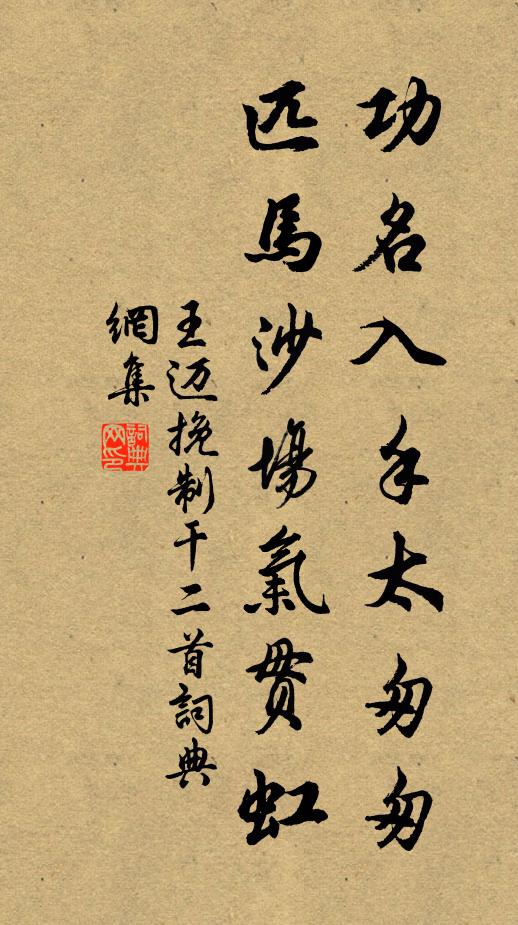 功名入手太匆匆
匹馬沙場氣貫虹
王迈挽制干二首詞典
網集
詞典网印